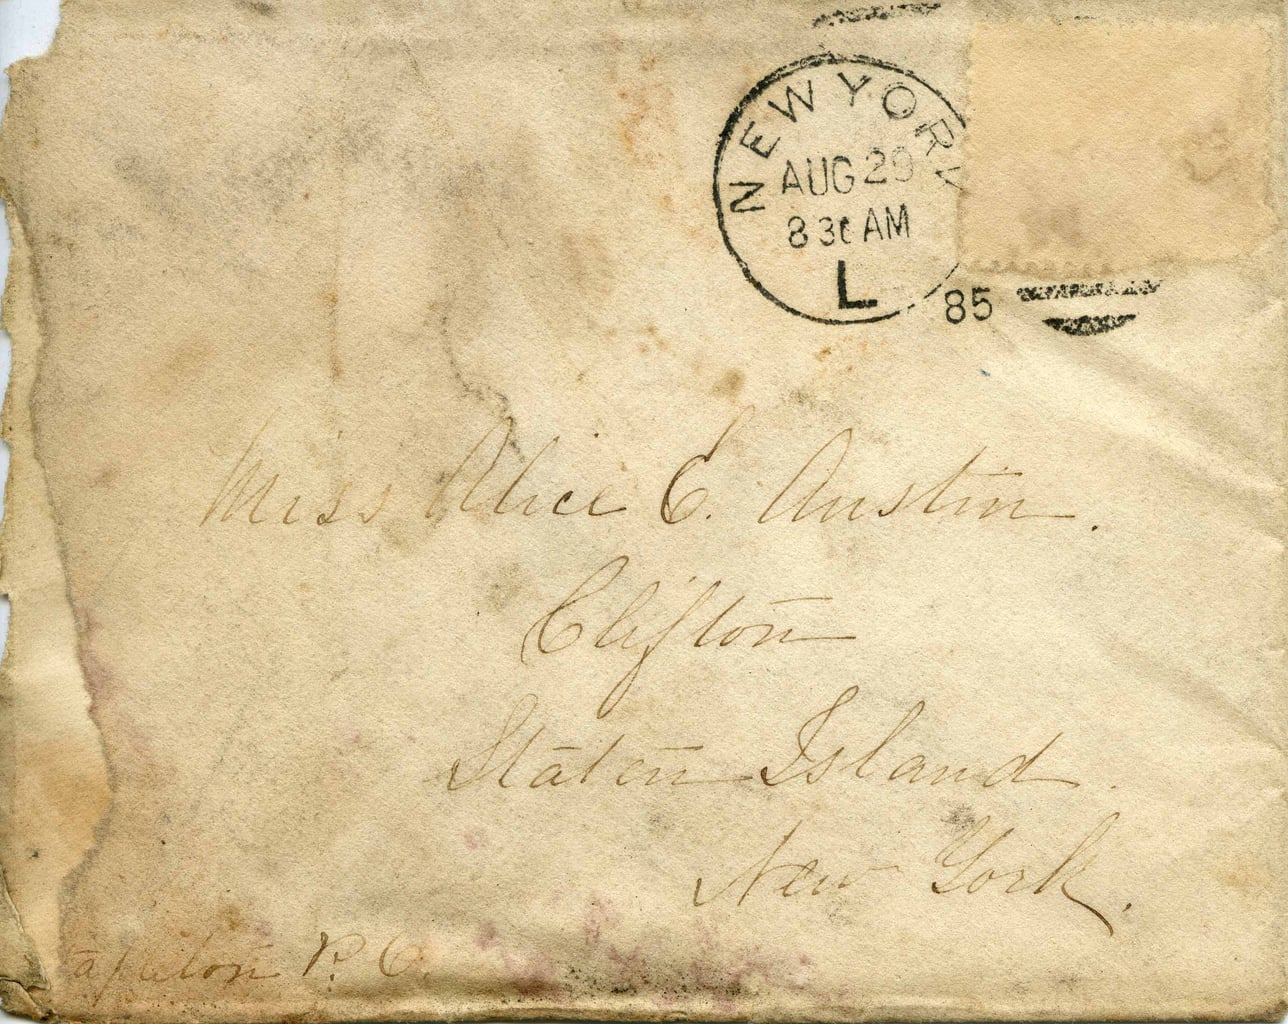 NEW YORK
AUG 29
8 30 AM
L
85
Miss Alice E. Austin.
Clifton
Staten Island.
New York.
tapleton P. O.